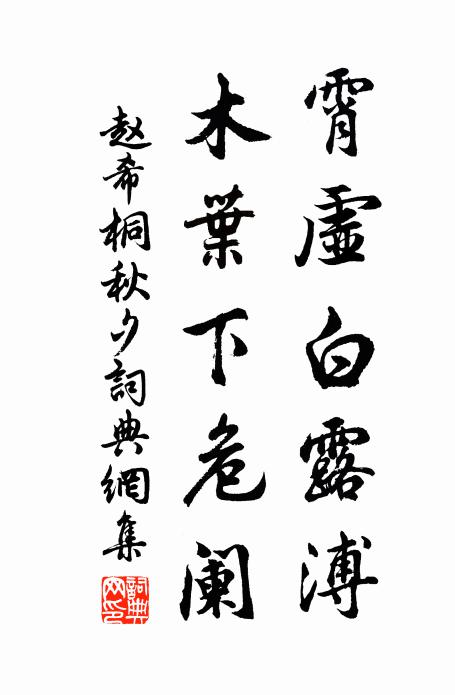 霄虛白露溥
木葉下危阑
赵希桐秋夕詞典網集
詞典网印